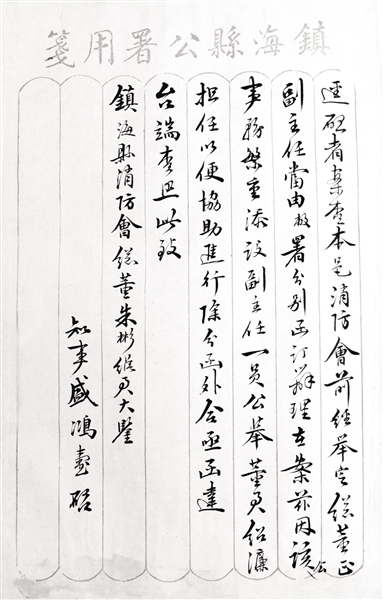 鎮海縣公署用箋
逕啟者案查本邑消防會前經舉定總董正
副主任當由敝署分別函訂辦理在案茲因該会
事務繁重添設副主任一員公舉董君紹濂
担任以便協助進行除分函外合亟函達
台端查照此致
鎮海縣消防會總董朱彬繩君大鑒
知事盛鴻燾啟